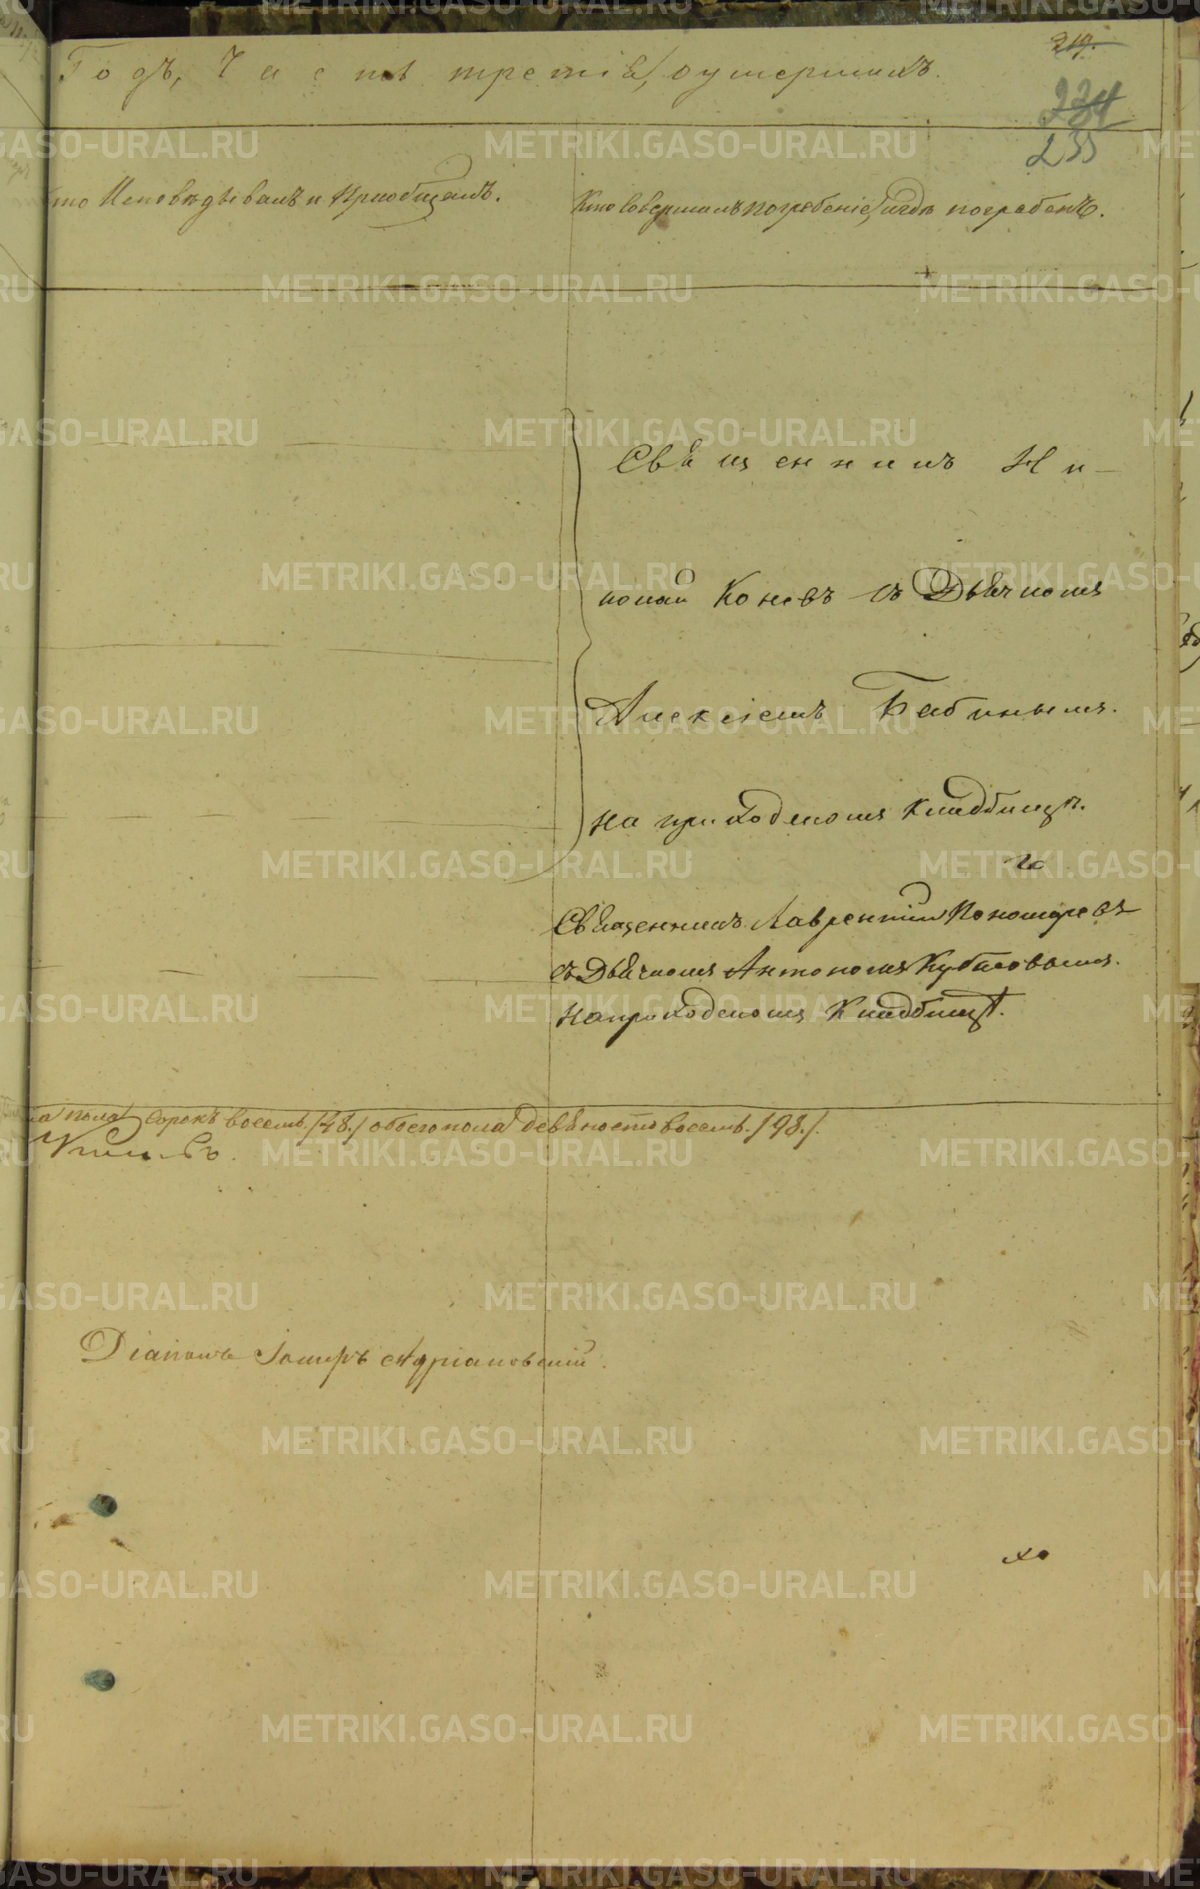 219.
Годъ, Часть третiя, о умершихъ.
224
235
кто Исповѣдывалъ и Приобщалъ.
Кто совершалъ погребенiе, и гдѣ погребенъ.
Священникъ Ни-
колай Коневъ съ Дьячкомъ
Алексiемъ Бабинымъ.
на приходскомъ кладбищѣ.
Священникъ Лаврентiй Пономаревъ
съ Дьячкомъ Антономъ Кубасовымъ.
на приходскомъ Кладбищѣ.
пола сорокъ восемь /48./ обоего пола девяносто восемь. /98./.
Дiаконъ Iосифъ Адрiановскiй.
METRIKI.GASO-URAL.RU